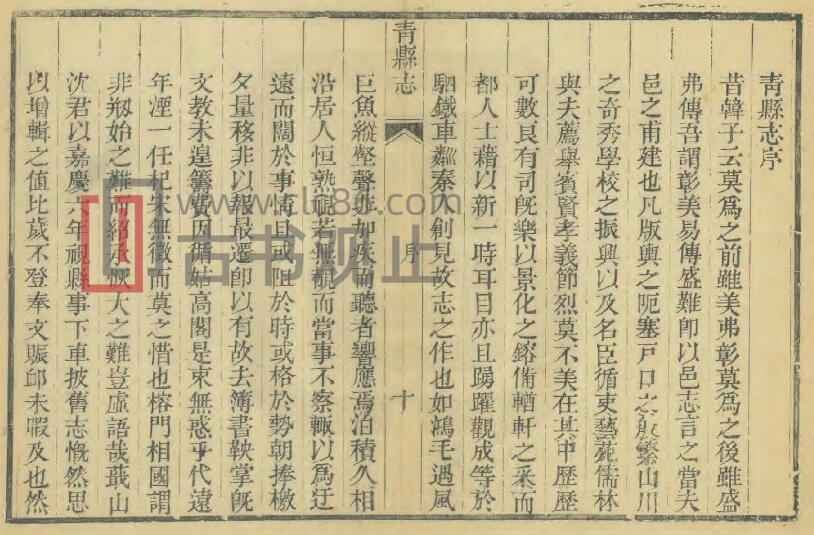 青縣志序
昔韓子云莫爲之前雖美弗彰莫爲之後雖盛
弗傳吾謂彰美易傳盛難卽以邑志言之當夫
邑之甫建也凡版輿之阨塞戸口之殷繁山川
之奇秀學校之振興以及名臣循吏藝苑儒林
與夫薦舉賓賢孝義節烈莫不美在其中歷歷
可數良有司旣樂以景化之鎔備輶軒之采而
都人士藉以新一時耳目亦且踴躍觀成等於
駟鐵車鄰秦人創見故志之作也如鴻毛遇風
青縣志
序
十
巨魚縱壑聲非加疾而聽者響應焉洎積久相
沿居人恒熟視若無覩而當事不察輒以爲迂
遠而闊於事情且或阻於時或格於勢朝捧檄
夕量移非以報最遷卽以有故去簿書鞅掌旣
文教未遑籌費因循姑高閣是束無惑乎代遠
年湮一任杞宋無徵而莫之惜也榕門相國謂
非剏始之難而紹承厥大之難豈虛語哉蕺山
沈君以嘉慶六年視縣事下車披舊志慨然思
以增輯之值比歲不登奉文賑卹未暇及也然
古书观止